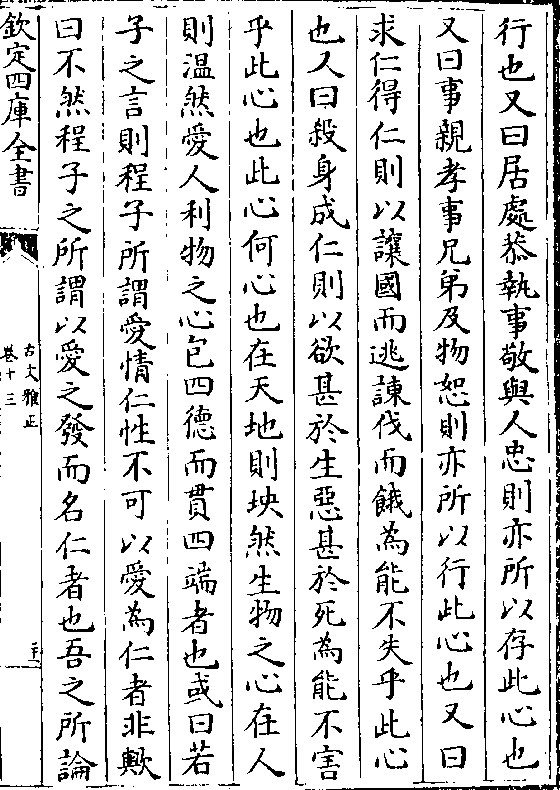 行也又曰居處恭執事敬與人忠則亦所以存此心也
又曰事親孝事兄弟及物恕則亦所以行此心也又曰
求仁得仁則以讓國而逃諫伐而餓為能不失乎此心
也又曰殺身成仁則以欲甚於生惡甚於死為能不害
乎此心也此心何心也在天地則坱然生物之心在人
則温然愛人利物之心包四德而貫四端者也或曰若
子之言則程子所謂愛情仁性不可以愛為仁者非歟
曰不然程子之所謂以愛之發而名仁者也吾之所論
欽定四庫全書
古文雅正
卷十三